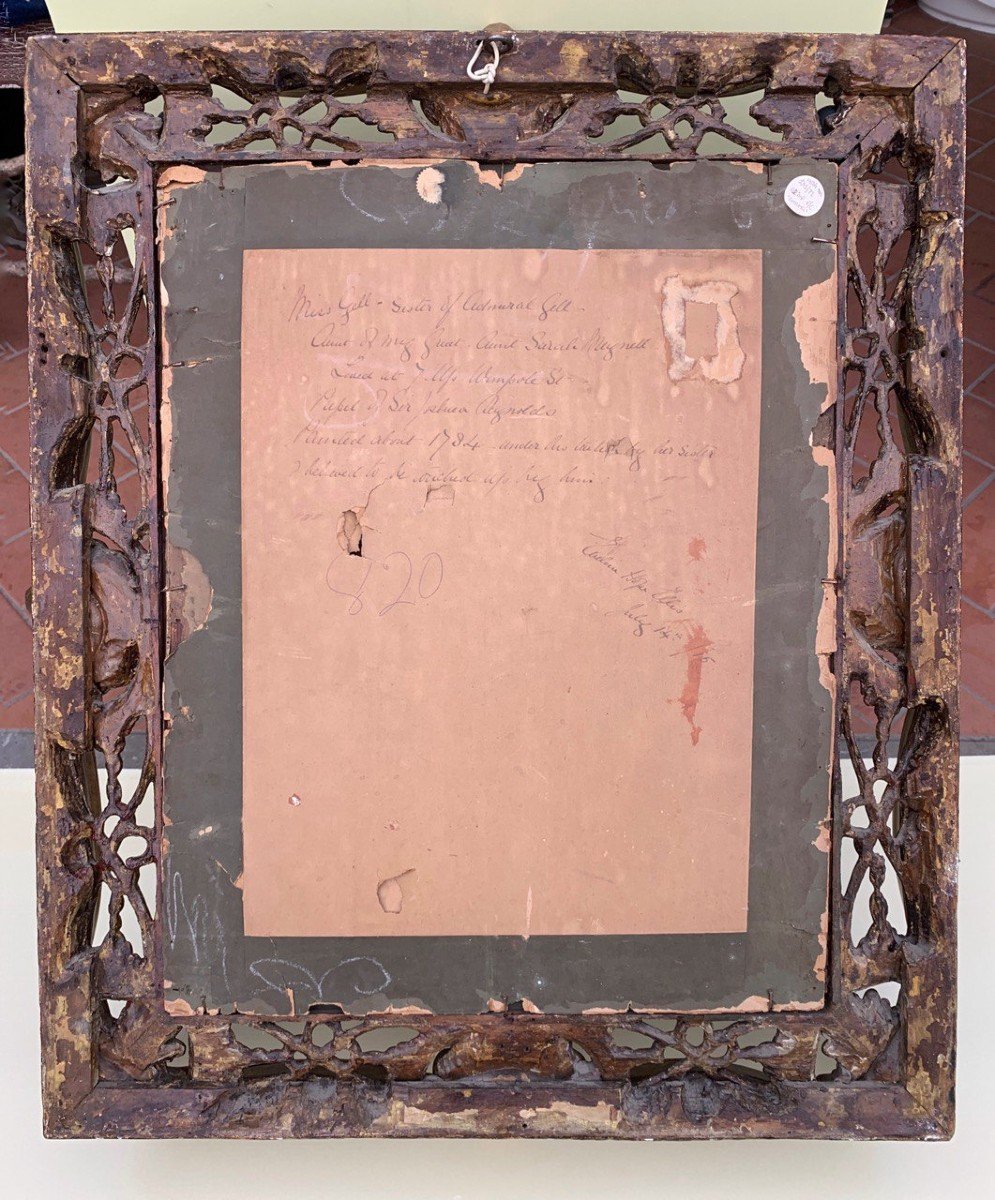 Miss Gell - Sister of Admiral Gell -
Aunt of my Great-Aunt Sarah Meynell
Lived at 7 Upr Wimpole St
Pupil of Sir Joshua Reynolds
Painted about 1784 under his by her sister
& believed to be touched up by him.
820
Hope Ellis
July 14th